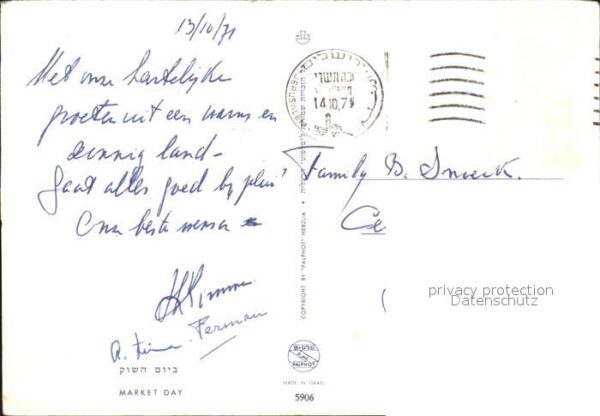 13/10/71
Met onze hartelijke
groeten uit een warm en
zonnig land -
Gaat alles goed bij jullie?
Onze beste wensen
ביום השוק
MARKET DAY
COPYRIGHT BY "PALPHOT" HERZLIA
PALPHOT
MADE IN ISRAEL
5906
ירושלים
JERUSALEM
כה תשרי
14.10.71
Family B.
privacy protection
Datenschutz